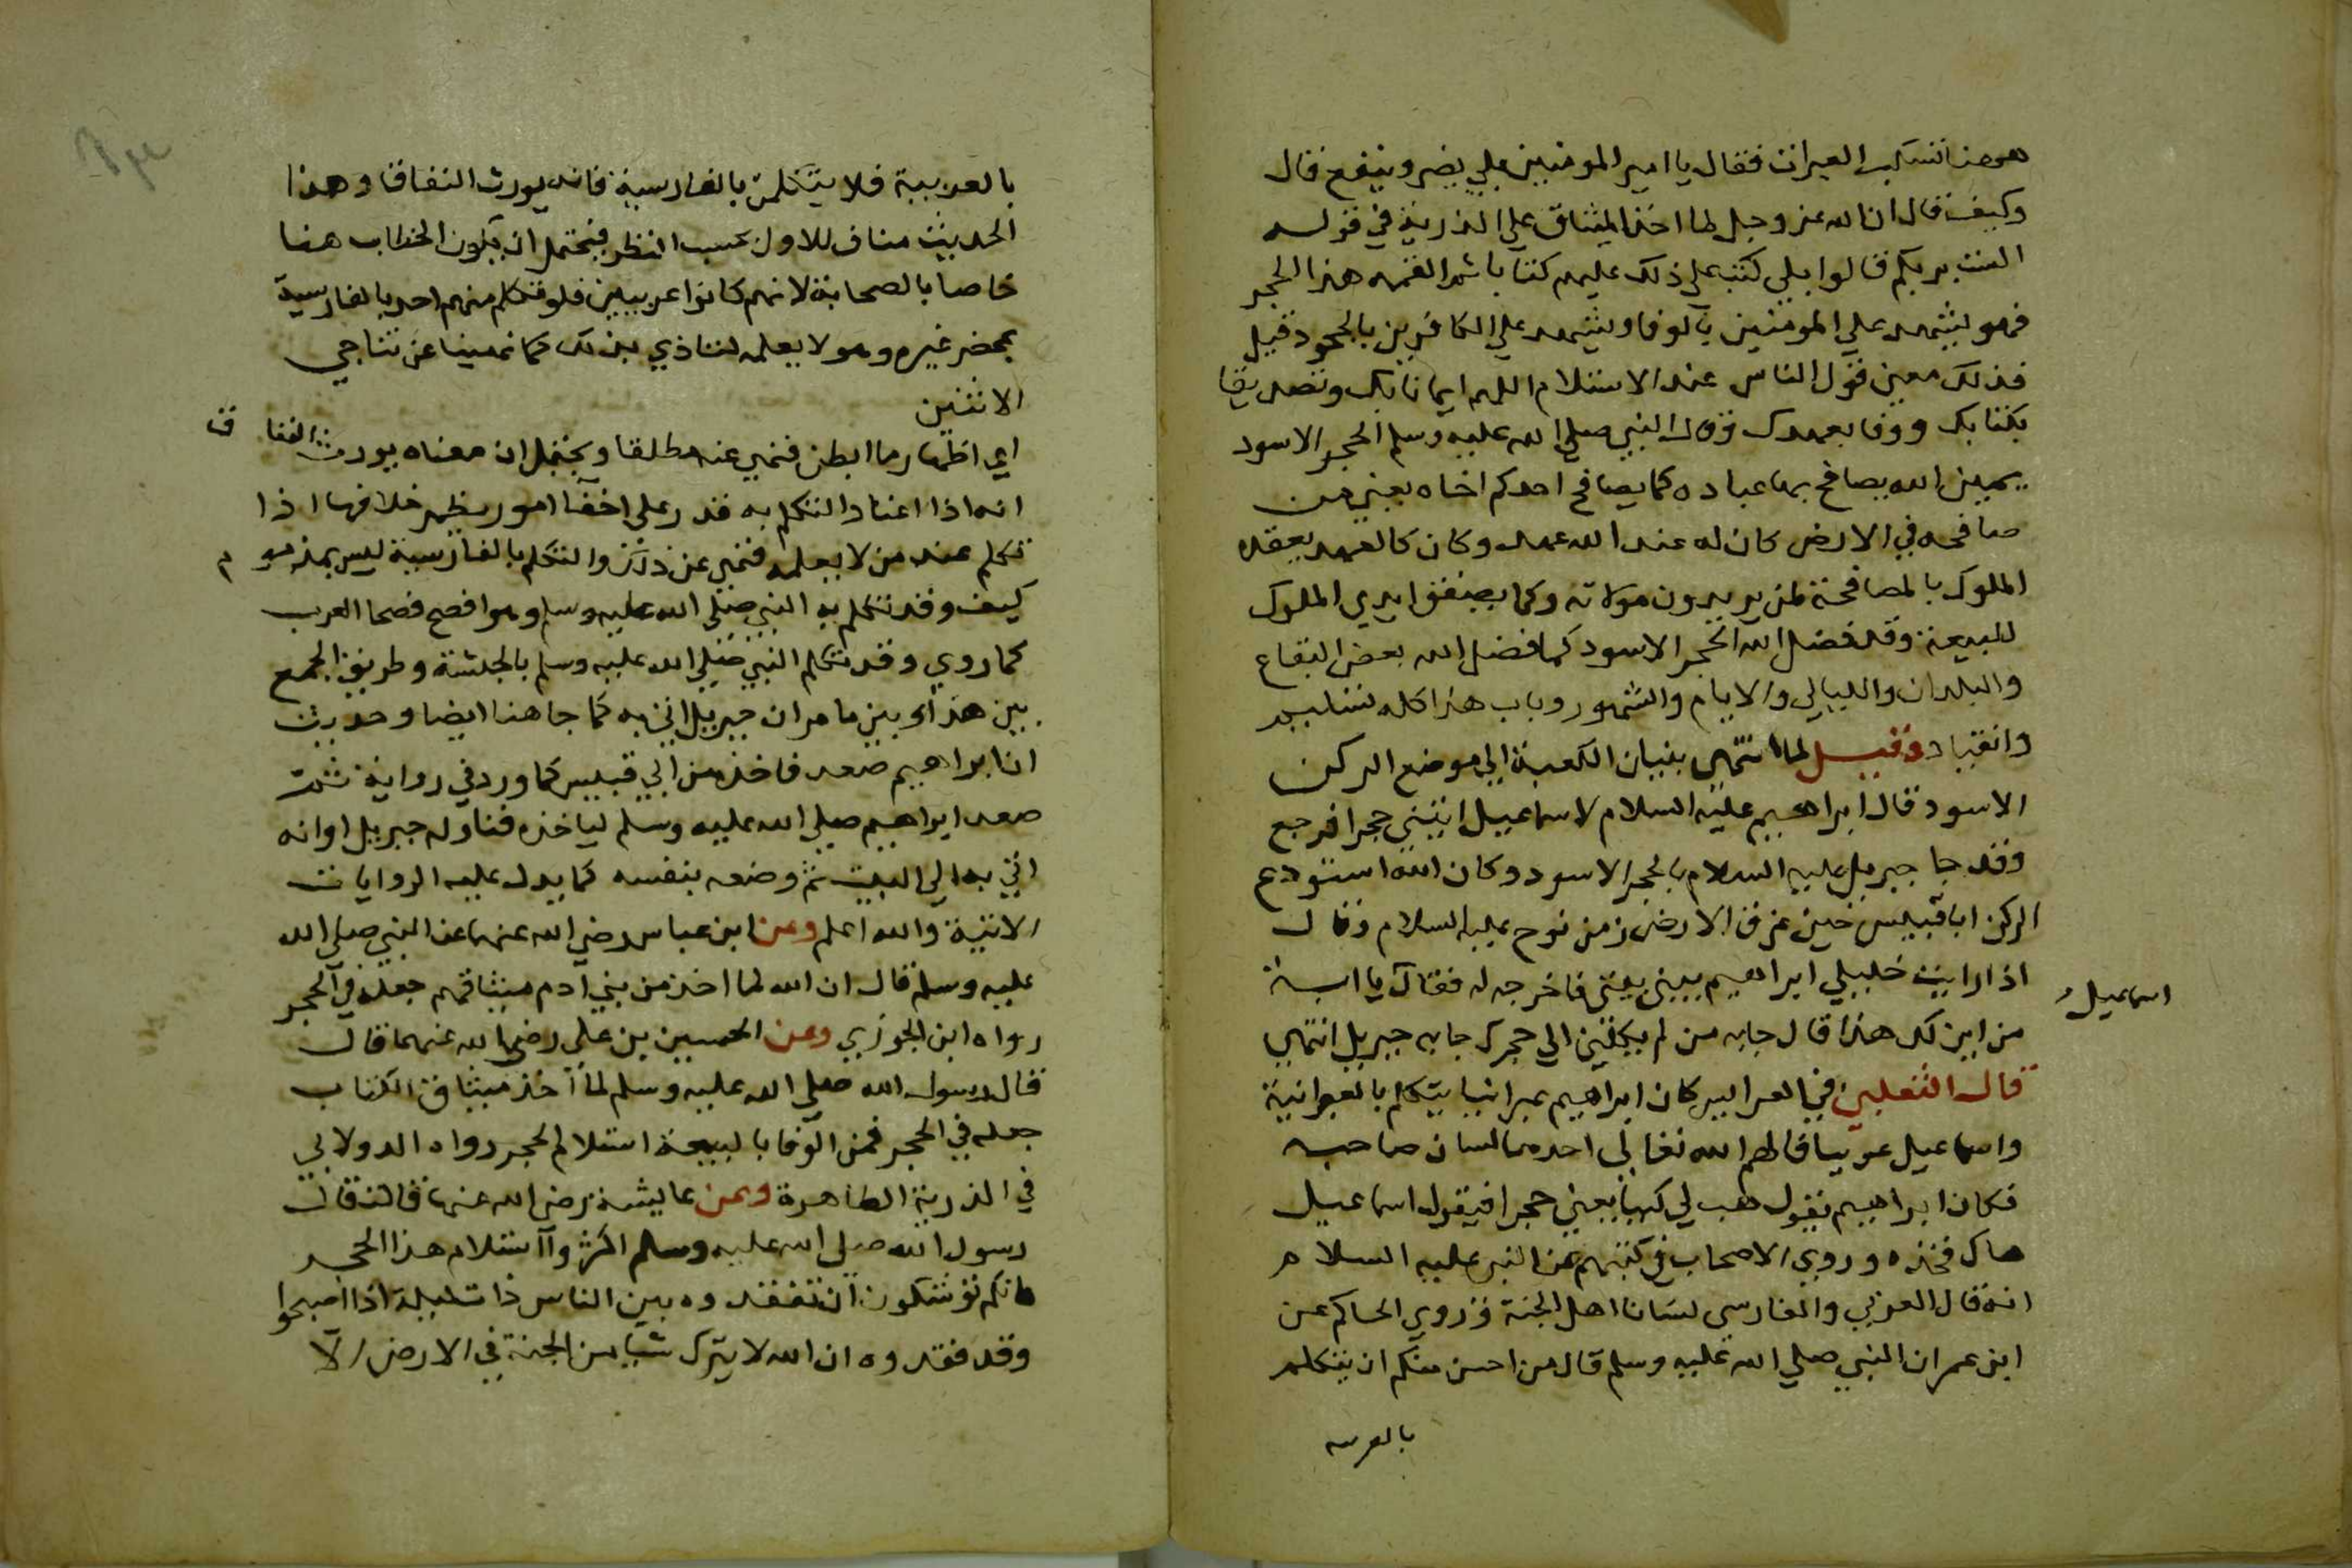 ههنا تسكب العبرات فقال يا امير المومنين بلي يضر وينفع قال
وكيف قال ان الله عز وجل لما اخذ الميثاق علي الذرية في قوله
الست بربكم قالوا بلي كتب علي ذلك عليهم كتابا ثم القمه هذا الحجر
فهو يشهد علي المومنين بالوفا ويشهد علي الكافرين بالجحود قيل
فذلك معين قول الناس عند الاستلام اللهم ايمانا بك وتصديقا
بكتابك ووفا بعهدك وقال النبي صلي الله عليه وسلم الحجر الاسود
يمين الله يصافح بها عباده كما يصافح احدكم اخاه يعني من
صافحه في الارض كان له عند الله عهد وكان كالعهد يعقده
الملوك بالمصافحة لمن يريدون موالاته وكما يصفق ايدي الملوك
للبيعة وقد فضل الله الحجر الاسود كما فضل الله بعض البقاع
والبلدان والليالي والايام والشهور وباب هذا كله تسليم
وانقياد وقيل لما انتهي بنيان الكعبة الي موضع الركن
الاسود قال ابراهيم عليه السلام لاسماعيل ائتيني حجرا فرجع
وقد جا جبريل عليه السلام بالحجر الاسود وكان الله استودع
الركن ابا قبيس حين غرق الارض زمن نوح عليه السلام وقال
اذا رايت خليلي ابراهيم يبني بيتي فاخرجه له فقال يا ابه
اسماعيل
من اين لك هذا قال جابه من لم يكلني الي حجرك جابه جبريل انتهي
قال الثعلبي في العرايس كان ابراهيم عبرانيا يتكلم بالعبرانية
واسماعيل عربيا فالهم الله تعالي احدهما لسان صاحبه
فكان ابراهيم يقول هب لي كهبا يعني حجرا فيقول اسماعيل
هاك فخذه وروي الاصحاب في كتبهم عن النبي عليه السلام
انه قال العربي والفارسي لسان اهل الجنة وروي الحاكم عن
ابن عمر ان النبي صلي الله عليه وسلم قال من احسن منكم ان يتكلم
بالعربيه
بالعربية فلا يتكلمن بالفارسية فانه يورث النفاق وهذا
الحديث مناف للاول بحسب النظر فيحتمل ان يكون الخطاب هنا
خاصا بالصحابة لانهم كانوا عربيين فلو تكلم منهم احد بالفارسية
بمحضر غيره وهو لا يعلمه لتاذي بذلك كما نهينا عن تناجي
الاثنين
اي اظهار ما ابطن فنهي عنه مطلقا ويحتمل ان معناه يورث النفاق
انه اذا اعتاد التكلم به قدر علي اخفا امور يظهر خلافها اذا
تكلم عند من لا يعلمه فنهي عن ذلك والتكلم بالفارسية ليس بمذموم
كيف وقد تكلم به النبي صلي الله عليه وسلم وهو افصح فصحا العرب
كما روي وقد تكلم النبي صلي الله عليه وسلم بالحبشة وطريق الجمع
بين هذا وبين ما مر ان جبريل اتي به كما جا هنا ايضا وحديث
ان ابراهيم صعد فاخذه من ابي قبيس كما ورد في رواية ثمت
صعد ابراهيم صلي الله عليه وسلم لياخذه فناوله جبريل او انه
اتي به الي البيت ثم وضعه بنفسه كما يدل عليه الروايات
الاتية والله اعلم وعن ابن عباس رضي الله عنهما عن النبي صلي الله
عليه وسلم قال ان الله لما اخذ من بني آدم ميثاقهم جعله في الحجر
رواه ابن الجوزي وعن الحسين بن علي رضي الله عنهما قال
قال رسول الله صلي الله عليه وسلم لما اخذ ميثاق الكتاب
جعله في الحجر فمن الوفا بالبيعة استلام الحجر رواه الدولابي
في الذرية الطاهرة وعن عايشة رضي الله عنها قالت قال
رسول الله صلي الله عليه وسلم اكثروا استلام هذا الحجر
فانكم توشكون ان تفقدوه بين الناس ذات ليلة اذ اصبحوا
وقد فقدوه ان الله لا يترك شيا من الجنة في الارض الا